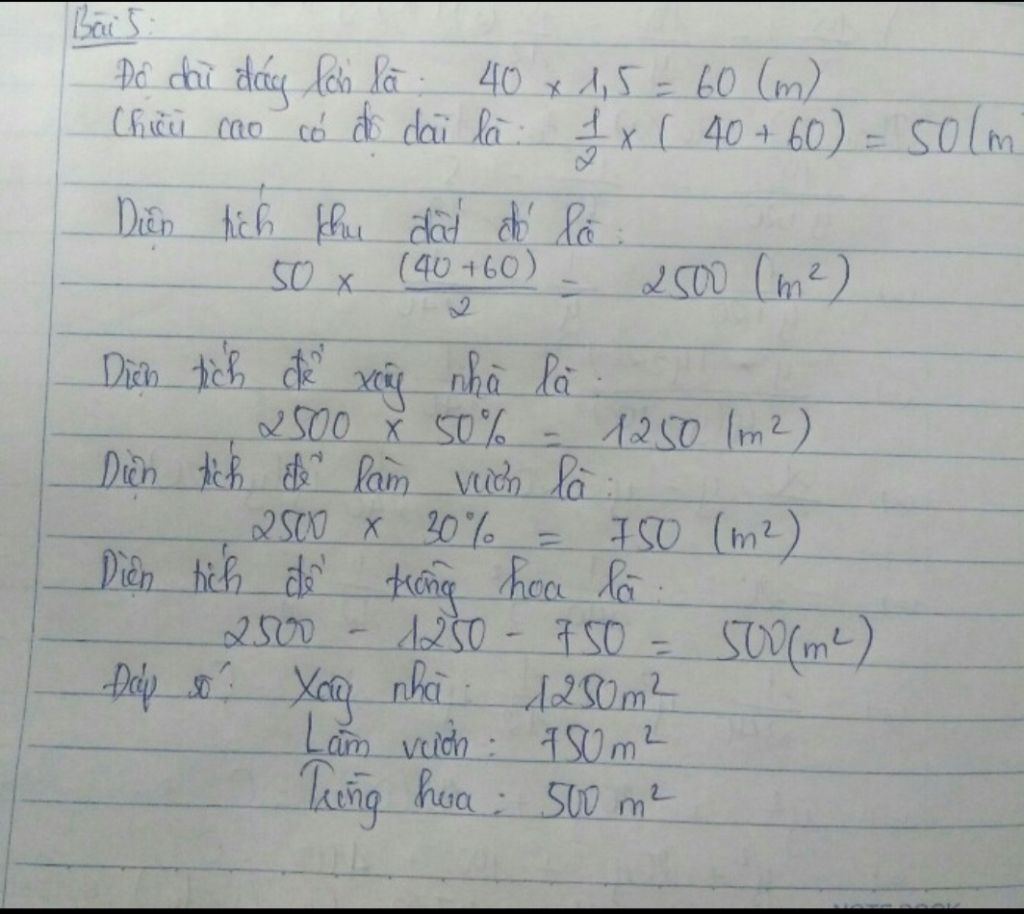 Bài 5:
Độ dài đáy lớn là: 40 × 1,5 = 60 (m)
Chiều cao có độ dài là: 1/2 × ( 40 + 60) = 50 (m
Diện tích khu đất đó là:
50 × (40 + 60)/2 = 2500 (m²)
Diện tích để xây nhà là:
2500 × 50% = 1250 (m²)
Diện tích để làm vườn là:
2500 × 30% = 750 (m²)
Diện tích để trồng hoa là:
2500 - 1250 - 750 = 500(m²)
Đáp số: Xây nhà: 1250m²
Làm vườn: 750m²
Trồng hoa: 500 m²